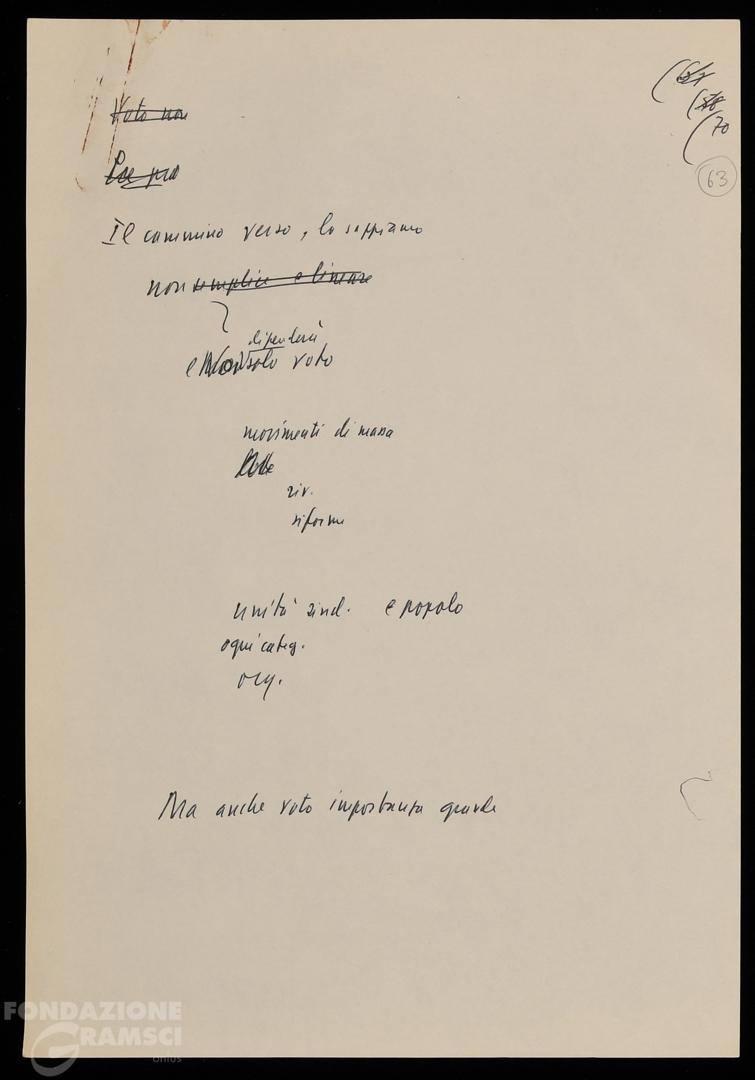 Voto non
(70
63
Il cammino verso, lo sappiamo
non semplice e lineare
dipenderà
e non solo voto
movimenti di massa
riv.
riforme
unità sind. e popolo
ogni categ.
org.
Ma anche voto importanza grande
FONDAZIONE
GRAMSCI
onlus